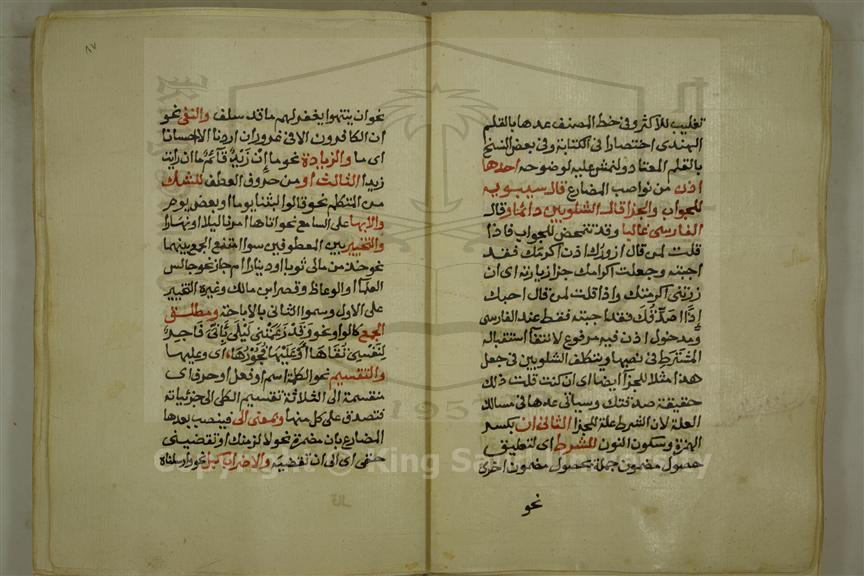 تغليب للاكثر وفي خط المصنف عدها بالقلم
الهندي اختصارا في الكتابة وفي بعض النسخ
بالقلم المعتاد ولنمش عليه لوضوحه احدها
اذن من نواصب المضارع قال سيبويه
للجواب والجزا قال الشلوبين دائما وقال
الفارسي غالبا وقد تتمحض للجواب فاذا
قلت لمن قال ازورك اذن اكرمك فقد
اجبته وجعلت اكرامك جزا زيارته اي ان
زرتني اكرمتك واذا قلت لمن قال احبك
إذًا أصدقك فقد اجبته فقط عند الفارسي
ومدخول اذن فيه مرفوع لانتفا استقباله
المشترط في نصبها ويتكلف الشلوبين في جعل
هذا مثلا للجزا ايضا اي ان كنت قلت ذلك
حقيقة صدقتك وسياتي عدها في مسالك
العلة لان الشرط علة للجزا الثاني ان بكسر
الهمزة وسكون النون للشرط اي لتعليق
حصول مضمون جملة بحصول مضمون اخرى
نحو
٨٧
نحو ان ينتهوا يغفر لهم ما قد سلف والنفي نحو
ان الكافرون الا في غرور ان اردنا الا احسانا
اي ما والزيادة نحو ما إن زيد قائم ما ان رايت
زيدا الثالث او من حروف العطف للشك
من المتكلم نحو قالوا لبثنا يوما او بعض يوم
والابهام على السامع نحو اتاها امرنا ليلا او نهارا
والتخيير بين المعطوفين سوا امتنع الجمع بينهما
نحو خذ من مالي ثوبا او دينارا ام جاز نحو جالس
العلما او الوعاظ وقصر ابن مالك وغيره التخيير
على الاول وسموا الثاني بالاباحة ومطلق
الجمع كالواو نحو وقد زعمتني ليلى بأني فاجر
لنفسي تقاها أو عليها فجورها اي وعليها
والتقسيم نحو الكلمة اسم او فعل او حرف اي
منقسمة الى الثلاثة تقسيم الكلي الى جزئياته
فتصدق على كل منها وبمعنى الى فينصب بعدها
المضارع بان مضمرة نحو لالزمنك او تقضيني
حقي اي الى ان تقضيه والاضراب كبل نحو وارسلناه
Copyright © King Saud University
1957